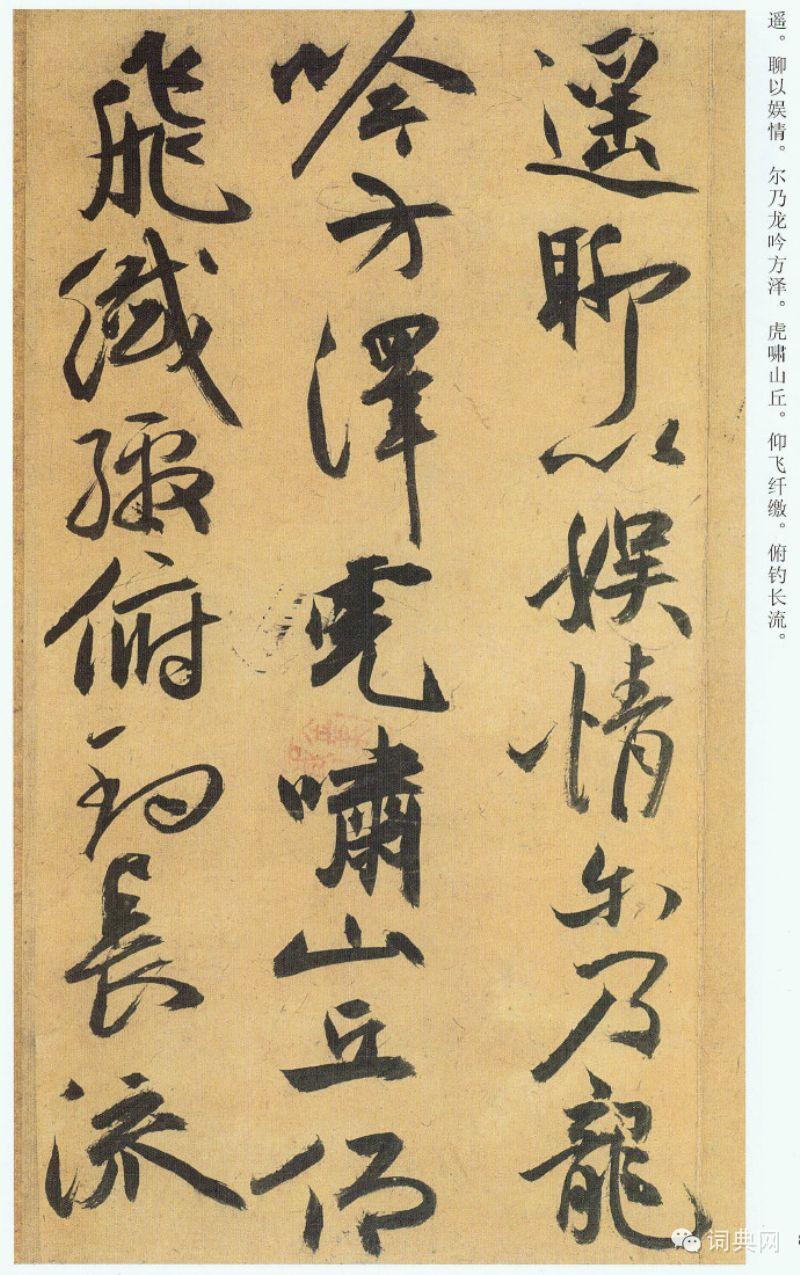 遥。聊以娱情。尔乃龙吟方泽。虎啸山丘。仰飞纤缴。俯钓长流。
遥聊以娱情尔乃龍
吟方澤虎嘯山丘仰
飛纖繳俯钓長流
词典网